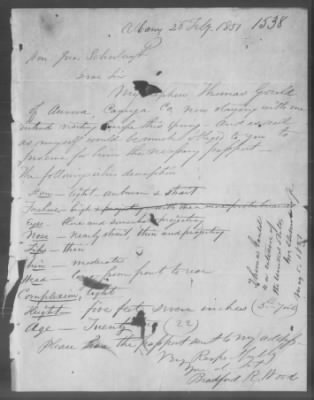 Albany 26 Feby. 1851 1538
Hon Jno.
Dear Sir
My nephew Thomas Gould
of Aurora Cayuga Co. now staying with me
intends visiting Europe this spring - And as well
as myself would be much obliged to you to
for him the necessary passport.
The following is his description
Hair - light auburn & short
Forehead - high
Eyes - Blue and somewhat projecting
Nose - nearly short, thin and projecting
Lips - thin
Chin - moderate
Head - long from front to rear
Complexion, light
Height - five feet seven inches (5 ft 7 in)
Age - Twenty two (22)
Please have the passport sent to my address
Very Respectfully
Your ob. Svt.
Bradford R. Wood
Thomas Gould
is a citizen of
the United States
May 5. 1851